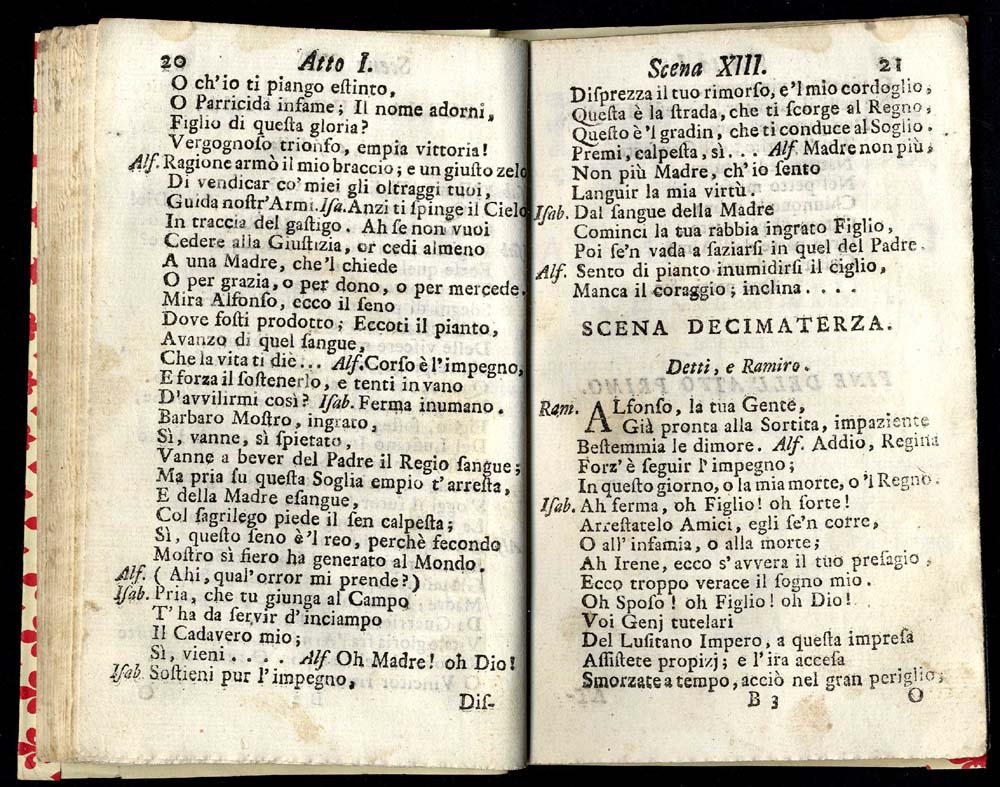 20 Atto I.
O ch'io ti piango eſtinto,
O Parricida infame; Il nome adorni,
Figlio di queſta gloria?
Vergognoſo trionfo, empia vittoria!
Alf. Ragione armò il mio braccio; e un giuſto zelo
Di vendicar co' miei gli oltraggi tuoi,
Guida noſtr' Armi. Iſa. Anzi ti ſpinge il Cielo
In traccia del gaſtigo. Ah ſe non vuoi
Cedere alla Giuſtizia, or cedi almeno
A una Madre, che'l chiede
O per grazia, o per dono, o per mercede.
Mira Alfonſo, ecco il ſeno
Dove foſti prodotto; Eccoti il pianto,
Avanzo di quel ſangue,
Che la vita ti diè... Alf. Corſo è l'impegno,
E forza il ſoſtenerlo, e tenti in vano
D'avvilirmi così? Iſab. Ferma inumano.
Barbaro Moſtro, ingrato,
Sì, vanne, sì ſpietato,
Vanne a bever del Padre il Regio ſangue;
Ma pria ſu queſta Soglia empio t'arreſta,
E della Madre eſangue,
Col ſagrilego piede il ſen calpeſta;
Sì, queſto ſeno è'l reo, perchè fecondo
Moſtro sì fiero ha generato al Mondo.
Alf. ( Ahi, qual'orror mi prende?)
Iſab. Pria, che tu giunga al Campo
T'ha da ſervir d'inciampo
Il Cadavero mio;
Sì, vieni.... Alf Oh Madre! oh Dio!
Iſab. Soſtieni pur l'impegno,
Diſ-
Scena XIII. 21
Diſprezza il tuo rimorſo, e'l mio cordoglio,
Queſta è la ſtrada, che ti ſcorge al Regno,
Queſto è'l gradin, che ti conduce al Soglio.
Premi, calpeſta, sì... Alf. Madre non più,
Non più Madre, ch'io ſento
Languir la mia virtù.
Iſab. Dal ſangue della Madre
Cominci la tua rabbia ingrato Figlio,
Poi ſe'n vada a ſaziarſi in quel del Padre.
Alf. Sento di pianto inumidirſi il ciglio,
Manca il coraggio; inclina....
SCENA DECIMATERZA.
Detti, e Ramiro.
Ram. ALfonſo, la tua Gente,
Già pronta alla Sortita, impaziente
Beſtemmia le dimore. Alf. Addio, Regina
Forz' è ſeguir l'impegno;
In queſto giorno, o la mia morte, o 'l Regno.
Iſab. Ah ferma, oh Figlio! oh ſorte!
Arreſtatelo Amici, egli ſe'n corre,
O all'infamia, o alla morte;
Ah Irene, ecco s'avvera il tuo preſagio,
Ecco troppo verace il ſogno mio.
Oh Spoſo! oh Figlio! oh Dio!
Voi Genj tutelari
Del Luſitano Impero, a queſta impreſa
Aſſiſtete propizj; e l'ira acceſa
Smorzate a tempo, acciò nel gran periglio,
B 3 O